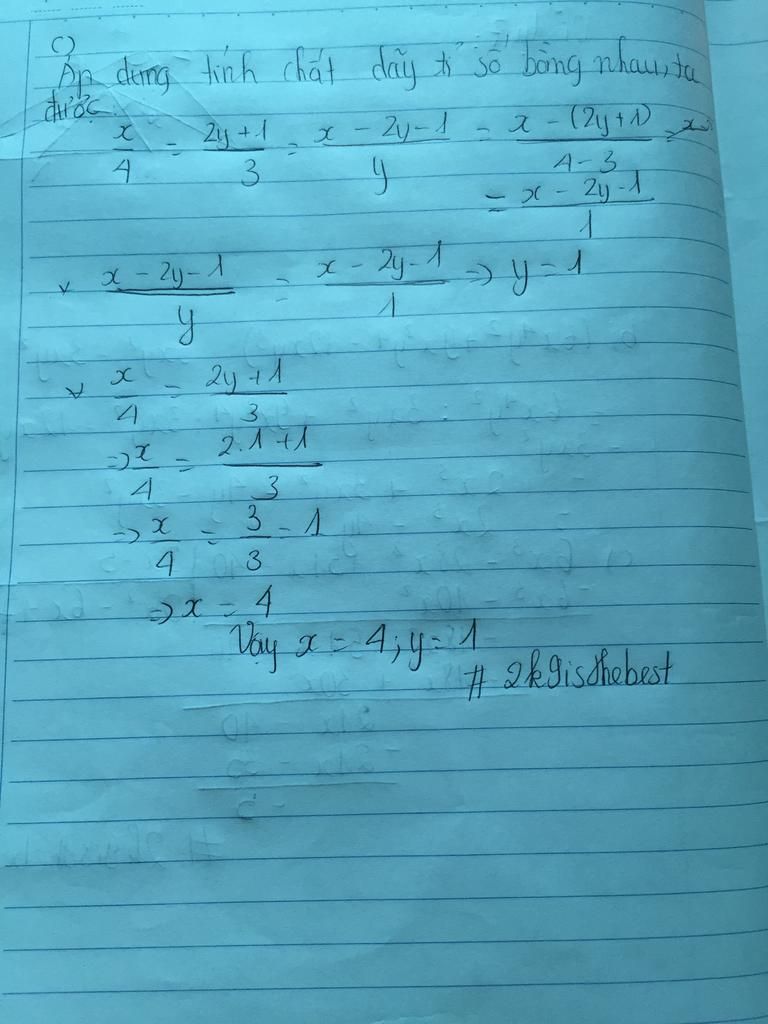 c)
Áp dụng tính chất dãy tỉ số bằng nhau, ta
được:
x/4 = 2y+1/3 = x-2y-1/y = x-(2y+1)/4-3
= x-2y-1/1
v x-2y-1/y = x-2y-1/1 => y=1
v x/4 = 2y+1/3
=> x/4 = 2.1+1/3
=> x/4 = 3/3 = 1
=> x = 4
Vậy x = 4; y = 1
# 2k9isthebest